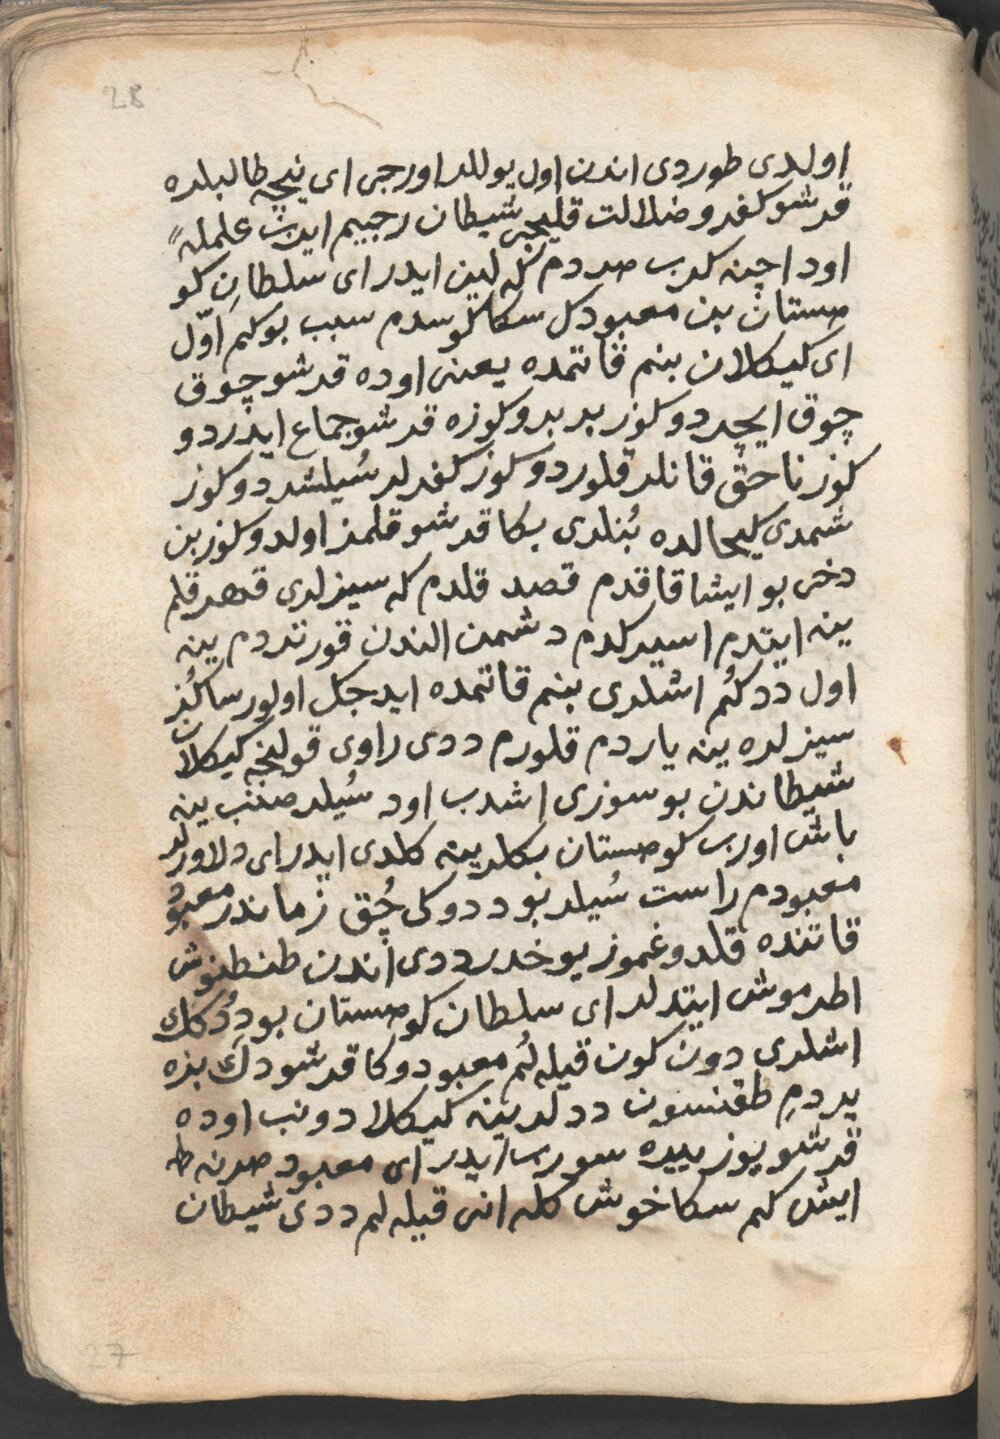 28
اولدی طوردی اندن اول یوللر اورجی ای نیچه طالبلره
قرشو کفر و ضلالت قلیجی شیطان رجیم ایدر علمله
اود اچنه کرب صردم که لعین ایدر ای سلطان کو
هستان بن معبودکل سکا کوسدم سبب بوکم اول
ای کیکلان بنم قاتمده یعنی اوده قرشو چوق
چوق ایچردوکوز بر بروکوزه قرشو جماع ایدردو
کوز ناحق قانلر قلوردوکوز کفرلر سیلشردوکوز
شمدیکیحالده بنلری بکا قرشو قلمز اولدوکوز بن
دخی بو ایشا قاقدم قصد قلدم که سیزلری قهر قلم
ینه ایتدم اسیرکدم دشمن الندن قورتردم ینه
اول ددکم اشلری بنم قاتمده ایدجکل اولورساکز
سیزلره ینه یاردم قلورم ددی راوی قولنجه کیکلان
شیطاندن بو سوزی اشدب اود سیلر صنب ینه
باش اورب کوهستان بکلرینه کلدی ایدر ای دلاورلر
معبودم راست سیلر بو ددوکی چق زماندر معبو
قاتنده قلدوغموز یوخدر ددی اندن طنطنوش
اطرموش ایتدلر ای سلطان کوهستان بو ددکک
اشلری دون کون قیله لم معبودوکا قرشو دک بزه
یردم طقنسون ددلر ینه کیکلا دونب اوده
قرشو یوز ییره سورب ایدر ای معبود صرنه طـ
ایش کم سکا خوش کله انی قیله لم ددی شیطان
27